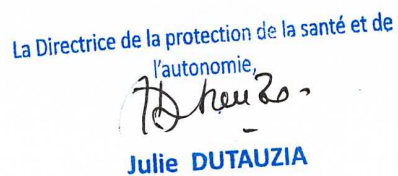 La Directrice de la protection de la santé et de
l'autonomie,
Julie DUTAUZIA